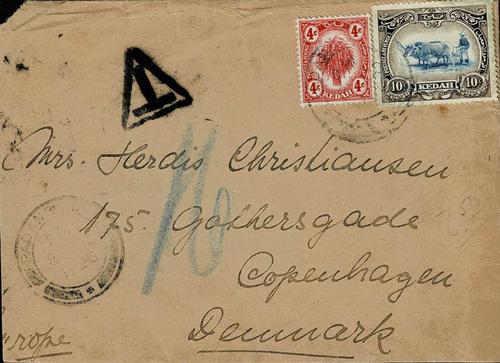 4c 4c
4c KEDAH 4c
10 KEDAH 10
T
Mrs. Herdis Christiansen
175. Gothersgade
Copenhagen
Denmark
16